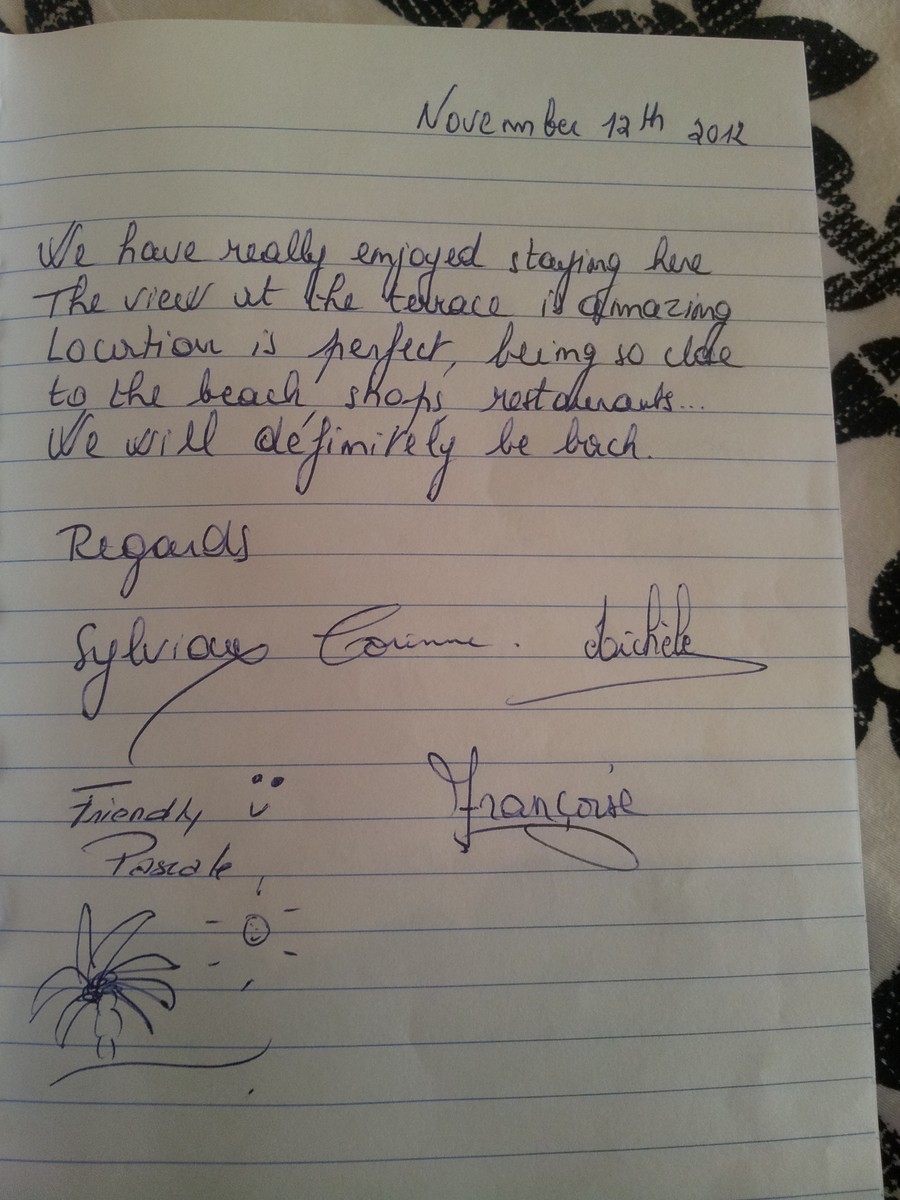 November 12th 2012
We have really enjoyed staying here
The view at the terrace is amazing
Location is perfect, being so close
to the beach, shops, restaurants...
We will définitely be back.
Regards
Sylviane Corinne. Michèle
Friendly
Françoise
Pascale